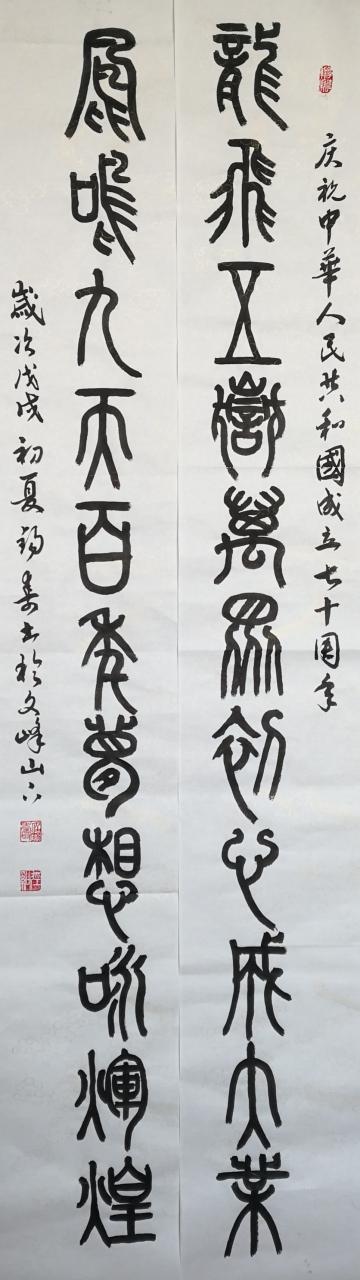 庆祝中華人民共和國成立七十周年
龍飛五嶽萬眾初心成大業
鳳鳴九天百年夢想詠輝煌
歲次戊戌初夏錫寿书於文峰山下